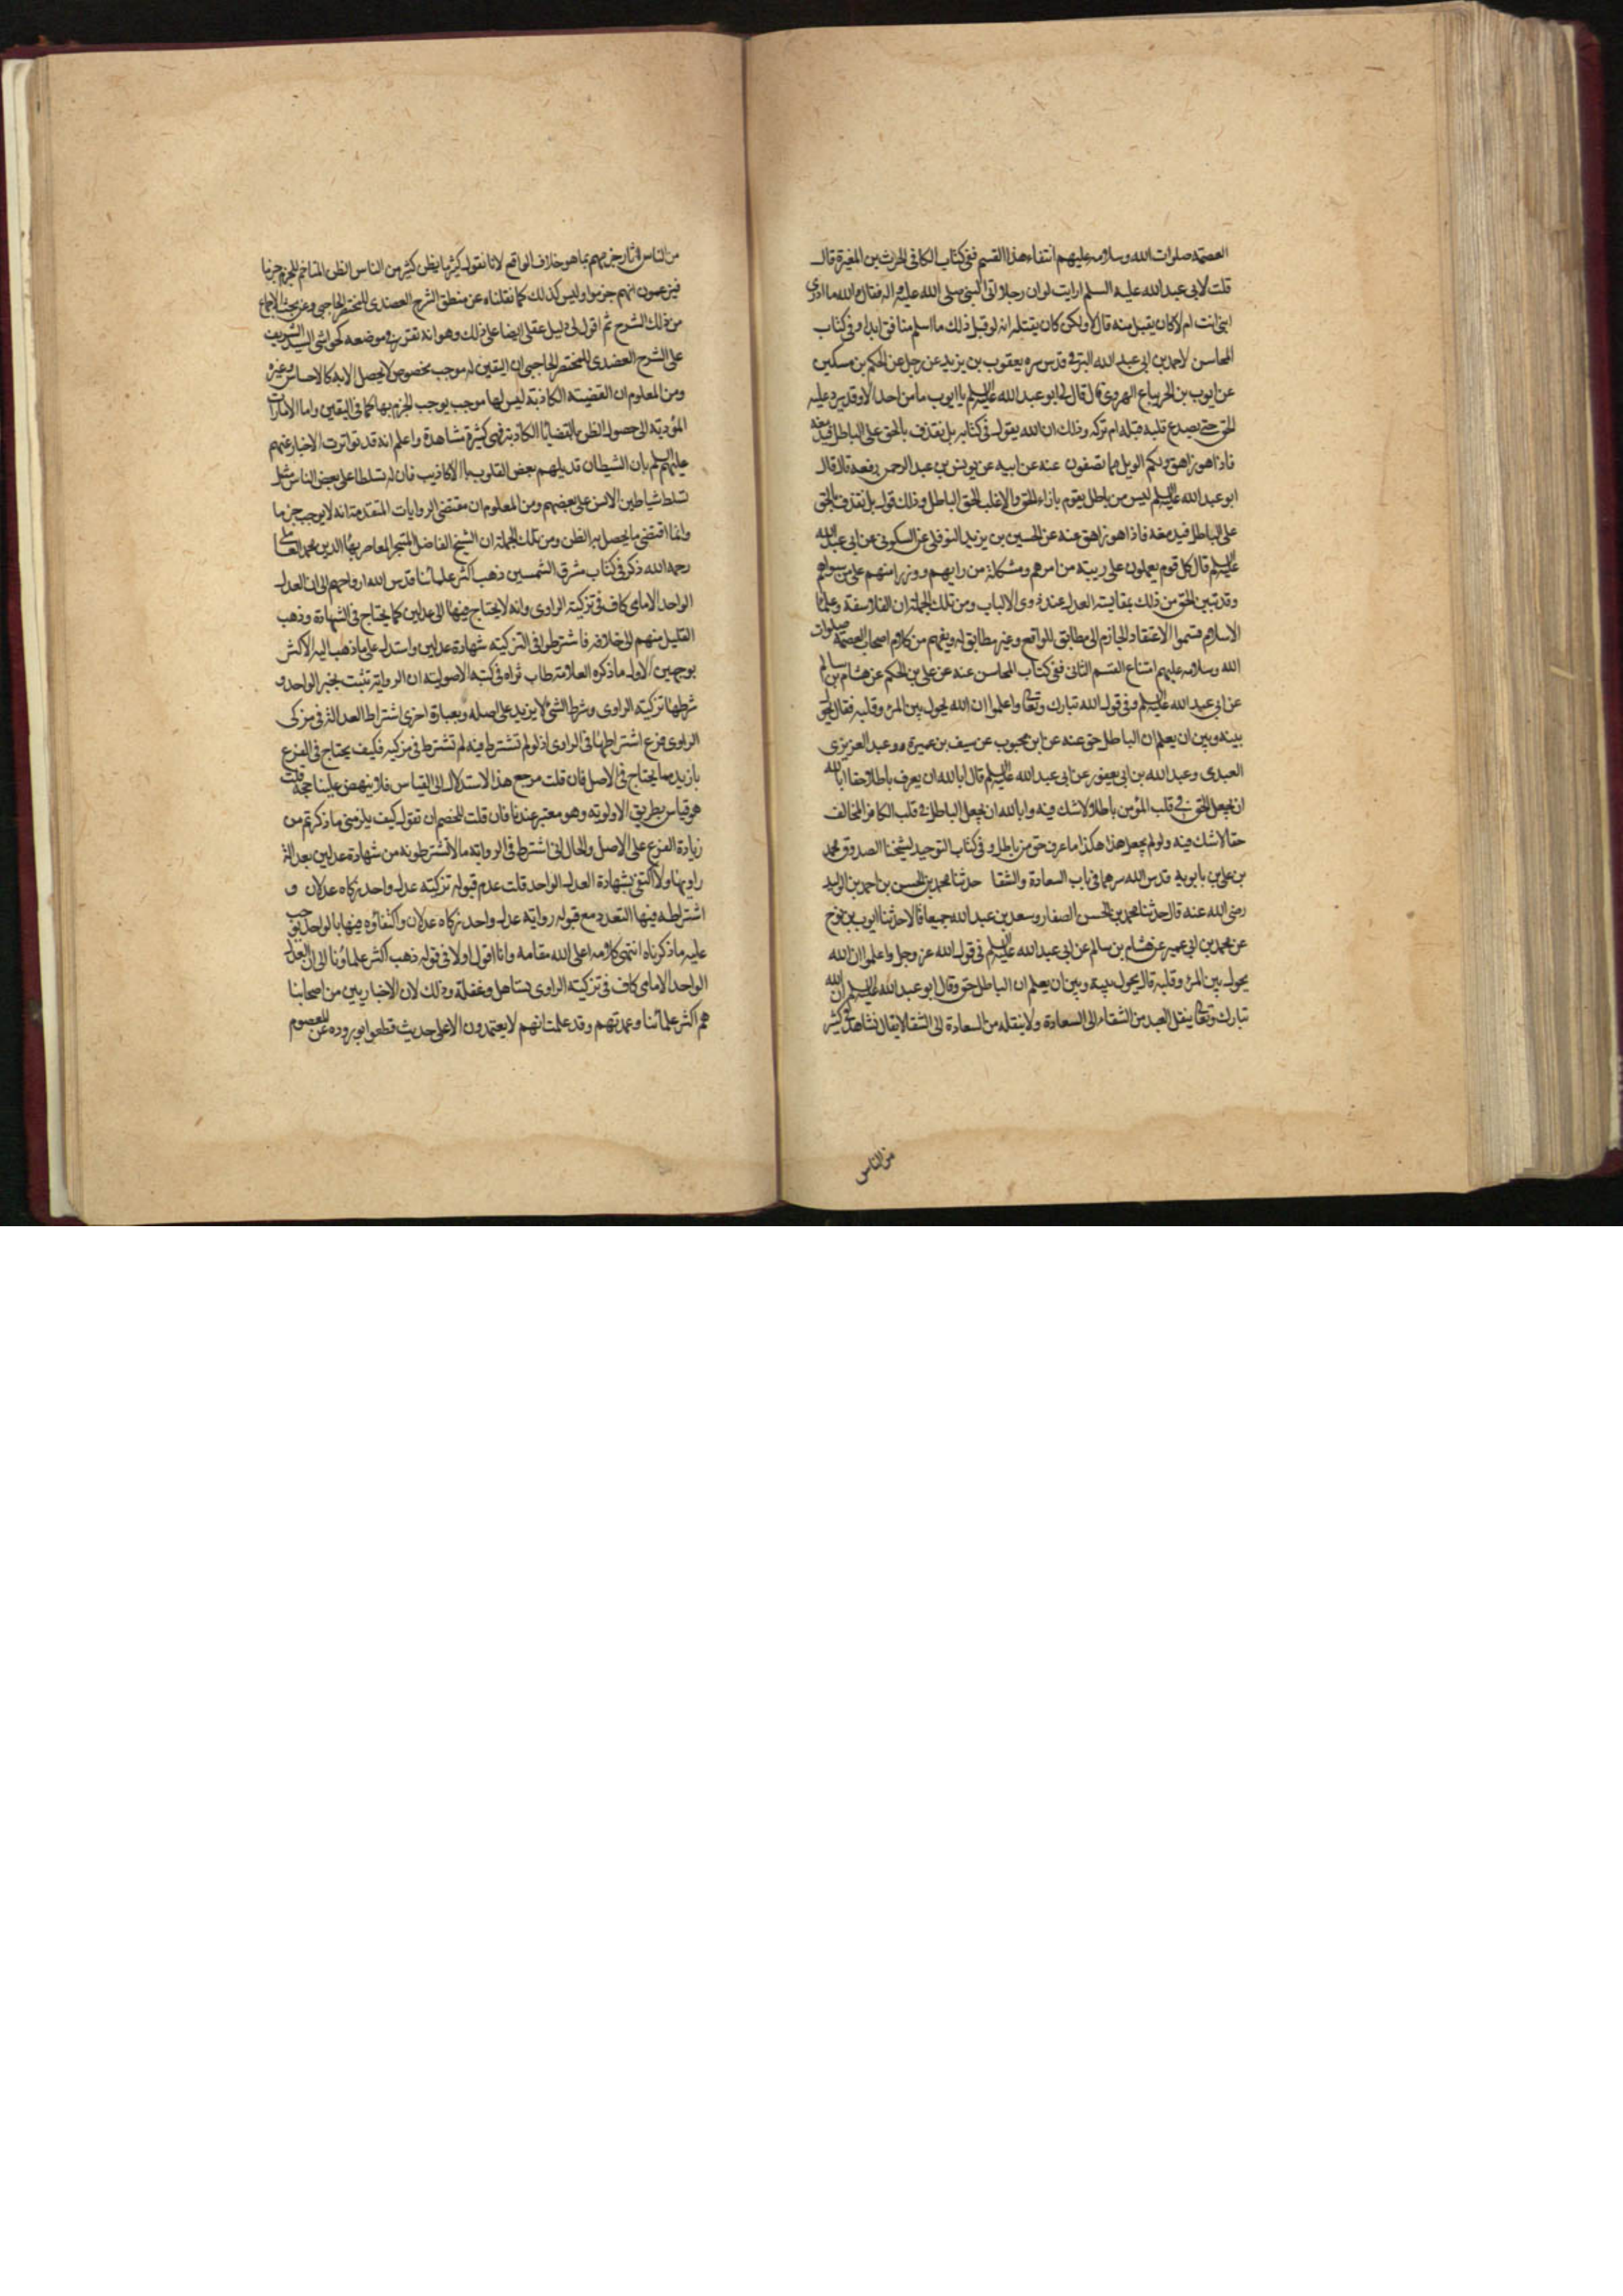 العصمة صلوات الله وسلامه عليهم انتفاء هذا القسم ففى كتاب الكافى الحرث بن المغيرة قال
قلت لابى عبد الله عليه السلم ارايت لو ان رجلا اتى النبى صلى الله عليه واله فقال والله ما ادرى
انبى انت ام لا كان يقبل منه قال لا ولكن كان يقتله انه لو قبل ذلك ما اسلم منافق ابدا وفى كتاب
المحاسن لاحمد بن ابى عبد الله البرقى قدس سره يعقوب بن يزيد عن رجل عن الحكم بن مسكين
عن ايوب بن الحر بياع الهروى قال قال لى ابو عبد الله عليه السلم يا ايوب ما من احد الا وقد يرد عليه
الحق حتى يصدع قلبه قبله ام تركه وذلك ان الله يقول فى كتابه بل نقذف بالحق على الباطل فيدمغه
فاذا هو زاهق ولكم الويل مما تصفون عنه عن ابيه عن يونس بن عبد الرحمن رفعه قال قال
ابو عبد الله عليه السلم ليس من باطل يقوم بازاء الحق الا غلب الحق الباطل وذلك قوله بل نقذف بالحق
على الباطل فيدمغه فاذا هو زاهق عنه عن الحسين بن يزيد النوفلى عن السكونى عن ابى عبد الله
عليه السلم قال كل قوم يعملون على ريبة من امرهم ومشكلة من رايهم وزراء منهم على من سواهم
وقد تبين الحق من ذلك بمقايسة العدل عند ذوى الالباب ومن تلك الجملة ان الفلاسفة وعلماء
الاسلام قسموا الاعتقاد الجازم الى مطابق للواقع وغير مطابق له ويفهم من كلام اصحاب العصمة صلوات
الله وسلامه عليهم امتناع القسم الثانى ففى كتاب المحاسن عنه عن على بن الحكم عن هشام بن سالم
عن ابى عبد الله عليه السلم فى قول الله تبارك وتعالى واعلموا ان الله يحول بين المرء وقلبه فقال يحول
بينه وبين ان يعلم ان الباطل حق عنه عن ابن محبوب عن سيف بن عميرة وعبد العزيز
العبدى وعبد الله بن ابى يعفور عن ابى عبد الله عليه السلم قال ابا الله ان يعرف باطلا حقا ابا الله
ان يجعل الحق فى قلب المؤمن باطلا لا شك فيه وابا الله ان يجعل الباطل فى قلب الكافر المخالف
حقا لا شك فيه ولو لم يجعل هذا هكذا ما عرف حق من باطل وفى كتاب التوحيد لشيخنا الصدوق محمد
بن على بن بابويه قدس الله سرهما فى باب السعادة والشقا حدثنا محمد بن الحسن بن احمد بن الوليد
رضى الله عنه قال حدثنا محمد بن الحسن الصفار وسعد بن عبد الله جميعا قالا حدثنا ايوب بن نوح
عن محمد بن ابى عمير عن هشام بن سالم عن ابى عبد الله عليه السلم فى قول الله عز وجل واعلموا ان الله
يحول بين المرء وقلبه قال يحول بينه وبين ان يعلم ان الباطل حق وقال ابو عبد الله عليه السلم ان الله
تبارك وتعالى ينقل العبد من الشقاء الى السعادة ولا ينقله من السعادة الى الشقا لا يقال نشاهد فى كثير
من الناس
من الناس اثار جزمهم بما هو خلاف الواقع لانا نقول كثيرا ما يظن كثير من الناس الظن المتاخم للجزم جزما
فيزعمون انهم جزموا وليس كذلك كما نقلناه عن منطق الشرح العضدى للمختصر الحاجبى وعن بحث الاجماع
من ذلك الشرح ثم اقول لى دليل عقلى ايضا على ذلك وهو انه تقرر فى موضعه كحواشى السيد الشريف
على الشرح العضدى للمختصر الحاجبى ان اليقين له موجب مخصوص لا يحصل الا به كالاحساس وغيره
ومن المعلوم ان القضية الكاذبة ليس لها موجب يوجب الجزم بها كما فى اليقين واما الامارات
المؤدية الى حصول الظن بالقضايا الكاذبة فهى كثيرة مشاهدة واعلم انه قد تواترت الاخبار عنهم
عليهم السلم بان الشيطان قد يلهم بعض القلوب بالاكاذيب فان له تسلطا على بعض الناس مثل
تسلط شياطين الانس على بعضهم ومن المعلوم ان مقتضى الروايات المتقدمة انه لا يوجب جزما
وانما اقتضى ما يحصل به الظن ومن تلك الجملة ان الشيخ الفاضل المتبحر المعاصر بهاء الدين محمد العاملى
رحمه الله ذكر فى كتاب مشرق الشمسين ذهب اكثر علمائنا قدس الله ارواحهم الى ان العدل
الواحد الامامى كاف فى تزكية الراوى وانه لا يحتاج فيها الى عدلين كما يحتاج فى الشهادة وذهب
القليل منهم الى خلافه فاشترطوا فى التزكية شهادة عدلين واستدل على ما ذهب اليه الاكثر
بوجهين الاول ما ذكره العلامة طاب ثراه فى كتبه الاصولية ان الرواية تثبت بخبر الواحد و
شرطها تزكية الراوى وشرط الشئ لا يزيد على اصله وبعبارة اخرى اشتراط العدالة فى مزكى
الراوى فرع اشتراطها فى الراوى اذ لو لم تشترط فيه لم تشترط فى مزكيه فكيف يحتاج فى الفرع
بازيد مما يحتاج فى الاصل فان قلت مرجع هذا الاستدلال الى القياس فلا ينهض علينا حجة قلت
هو قياس بطريق الاولوية وهو معتبر عندنا فان قلت للخصم ان تقول كيف يلزمنى ما ذكرتم من
زيادة الفرع على الاصل والحال انى اشترط فى الرواية ما لا تشترطونه من شهادة عدلين بعدالة
راويها ولا اكتفى بشهادة العدل الواحد قلت عدم قبوله تزكية عدل واحد زكاه عدلان و
اشتراطه فيها التعدد مع قبوله رواية عدل واحد زكاه عدلان واكتفاؤه فيها بالواحد يوجب
عليه ما ذكرناه انتهى كلامه اعلى الله مقامه وانا اقول اولا فى قوله ذهب اكثر علماؤنا الى ان العدل
الواحد الامامى كاف فى تزكية الراوى تساهل وغفلة وذلك لان الاخباريين من اصحابنا
هم اكثر علمائنا وعمدتهم وقد علمت انهم لا يعتمدون الا على حديث قطعوا بوروده عن المعصوم